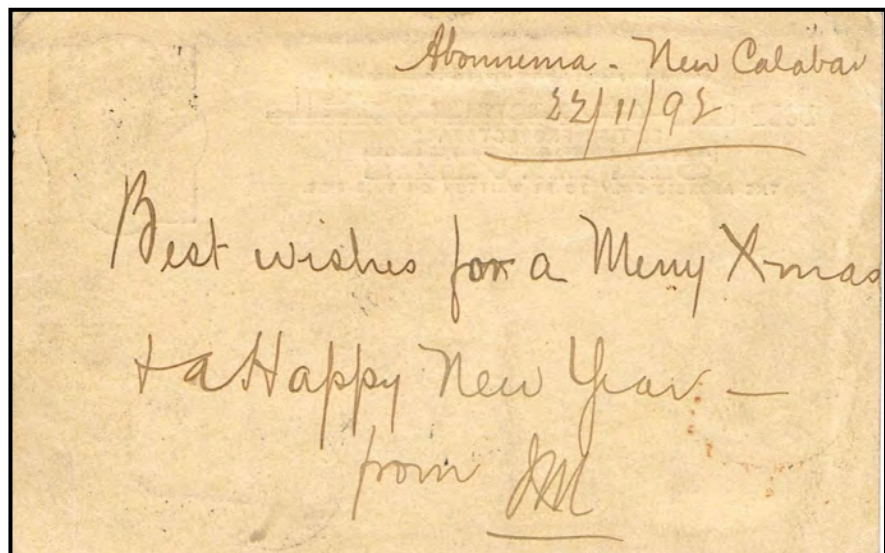 Abonnema - New Calabar
22/11/92
Best wishes for a Merry Xmas
+ a Happy New Year —
from JM